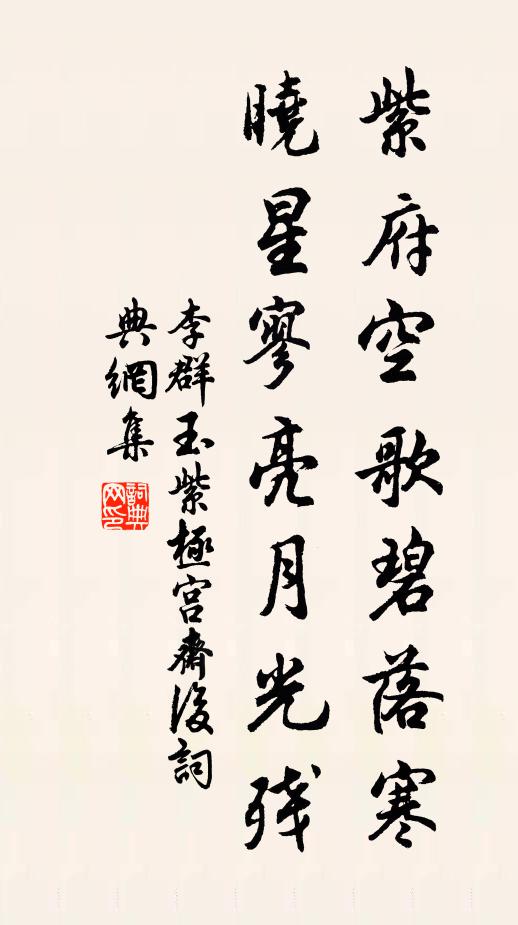 紫府空歌碧落寒
曉星寥亮月光残
李群玉紫極宫齋後詞
典網集
詞典
网印